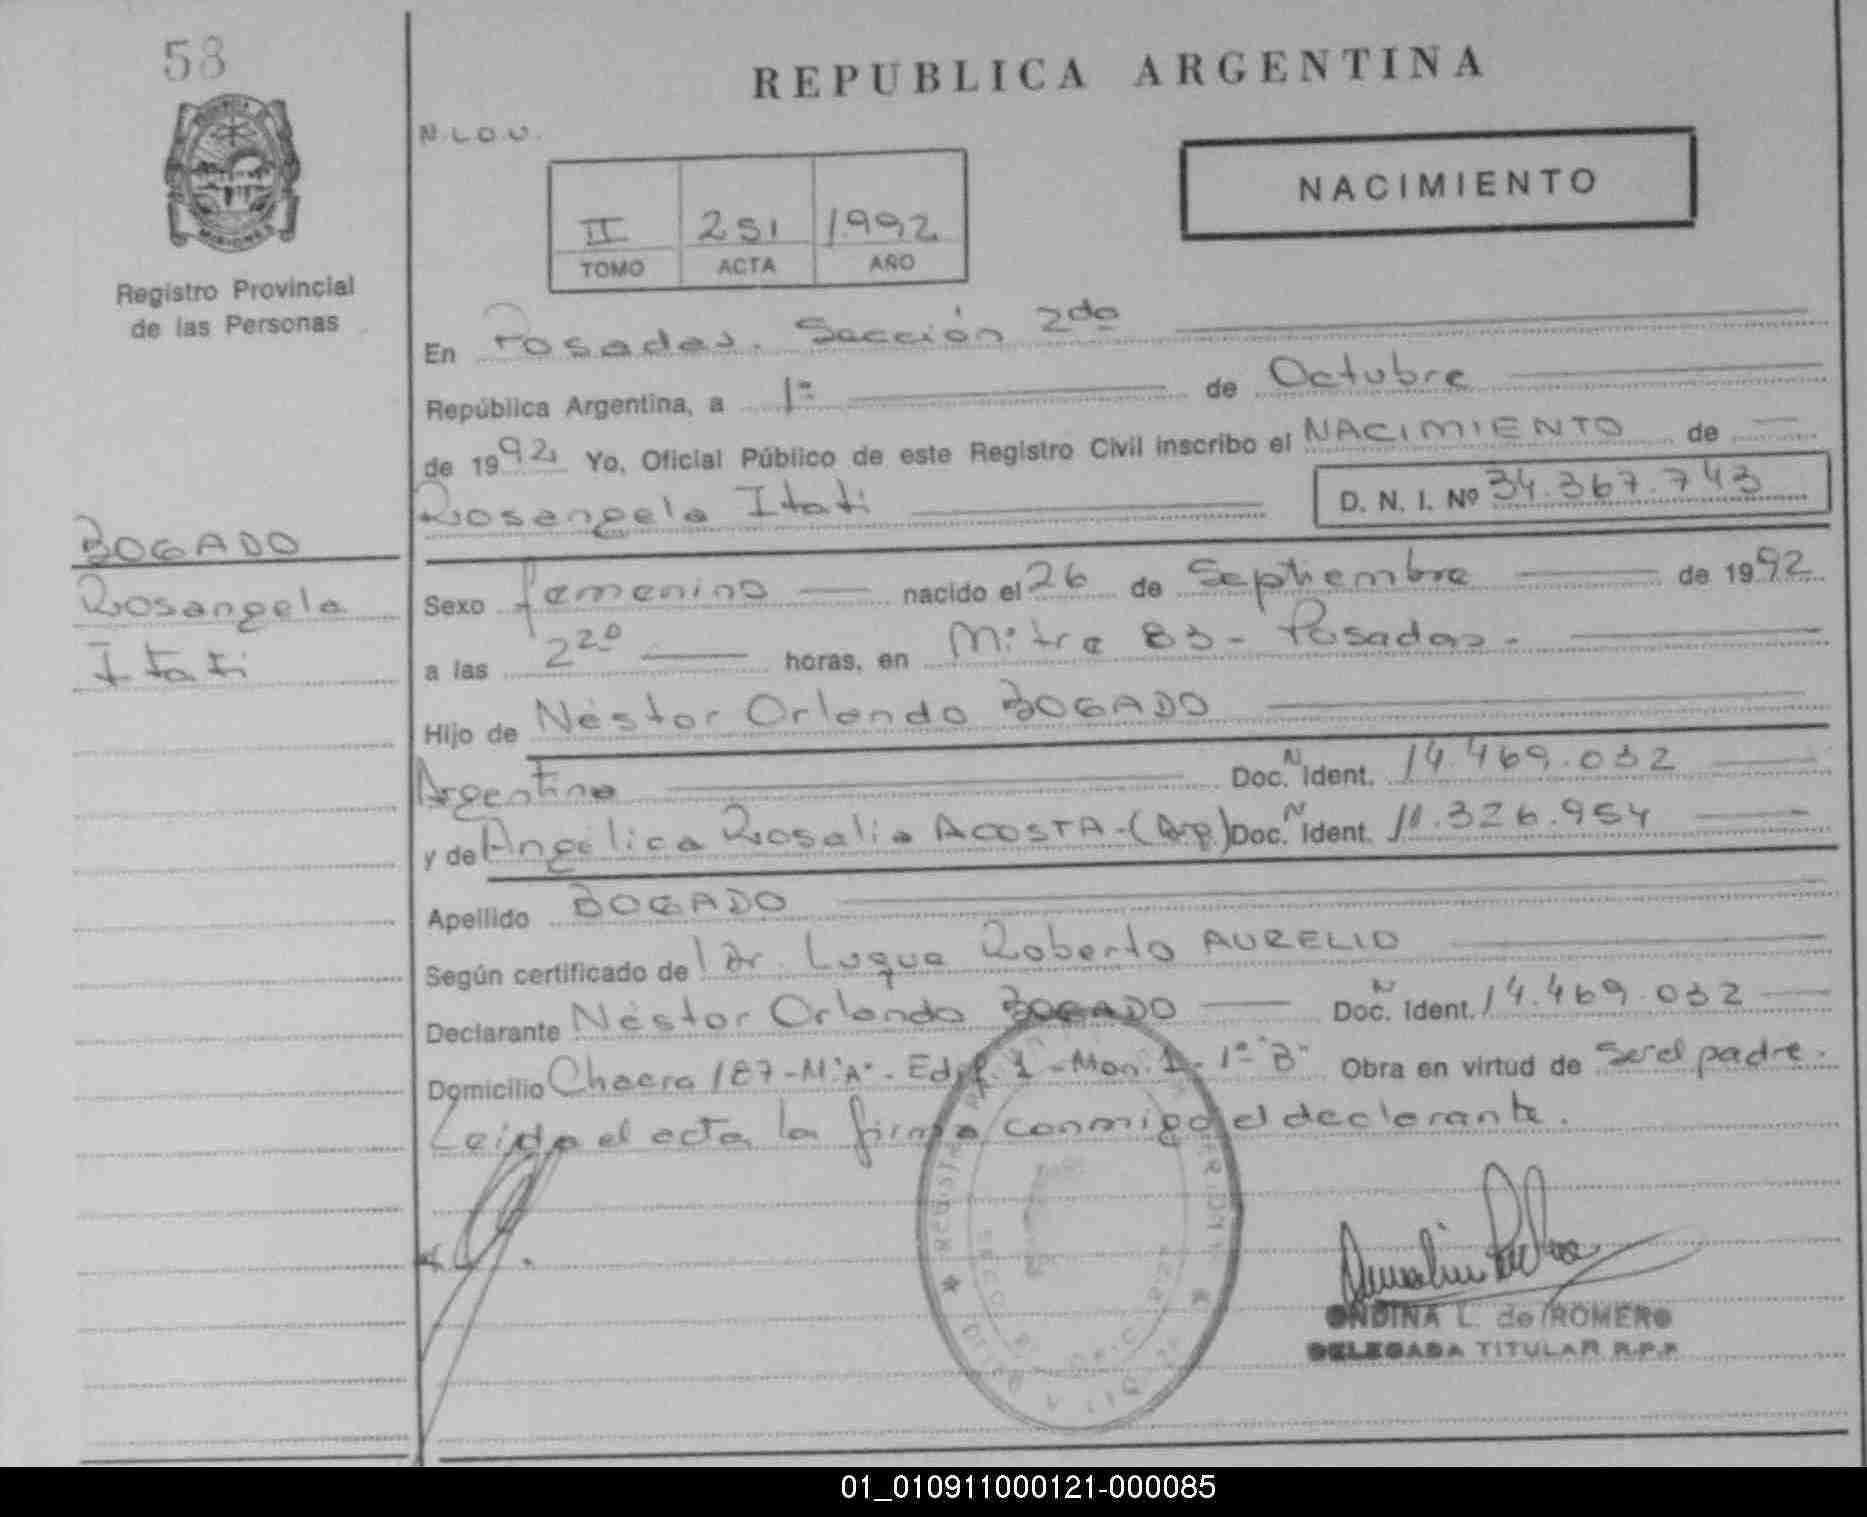 58
REPUBLICA ARGENTINA
N.L.O.U.
NACIMIENTO
II 251 1.992
TOMO ACTA AÑO
MISIONES
Registro Provincial
de las Personas
En Posadas. Sección 2do
República Argentina, a 1º de Octubre
de 1992 Yo, Oficial Público de este Registro Civil inscribo el NACIMIENTO de
Rosangela Itati D. N. I. Nº 34.367.743
BOGADO
Rosangela
Itati
Sexo femenino nacido el 26 de Septiembre de 1992
a las 2 20 horas, en Mitre 83 - Posadas.-
Hijo de Néstor Orlando BOGADO
Argentino Doc. N Ident. 14.469.032
y de Angélica Rosalia ACOSTA-(Arg.) Doc. N Ident. 11.326.954
Apellido BOGADO
Según certificado de l Dr. Luque Roberto AURELIO
Declarante Néstor Orlando BOGADO Doc. N Ident. 14.469.032
Domicilio Chacra 187-M:"A"- Edif. 1 - Mon. 1 - 1º "B" Obra en virtud de ser el padre.
Leida el acta, la firma conmigo el declarante.
ONDINA L. de ROMERO
DELEGADA TITULAR R.P.P.
01_010911000121-000085